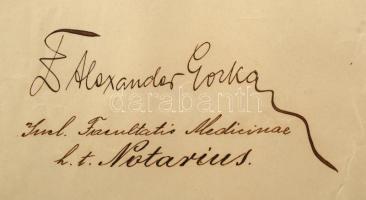 Dr Alexander Gorka
Incl. Facultatis Medicinae
h. t. Notarius.
darabanth